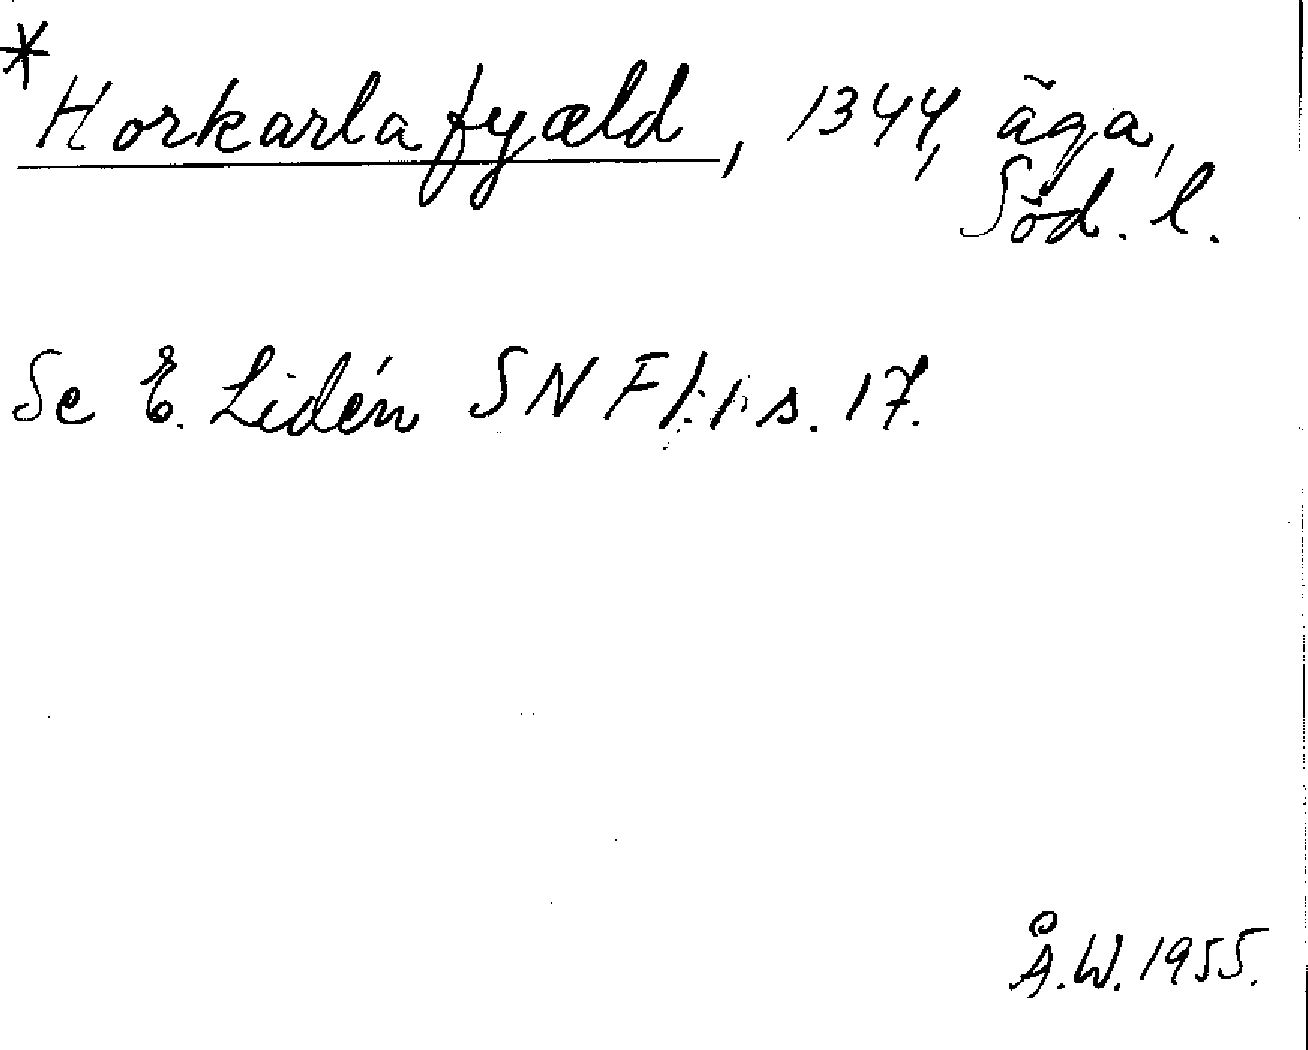 *
Horkarlafyæld, 1344, äga,
Söd. l.
Se E. Lidén SNF 1:1, s. 17.
Å.W. 1955.